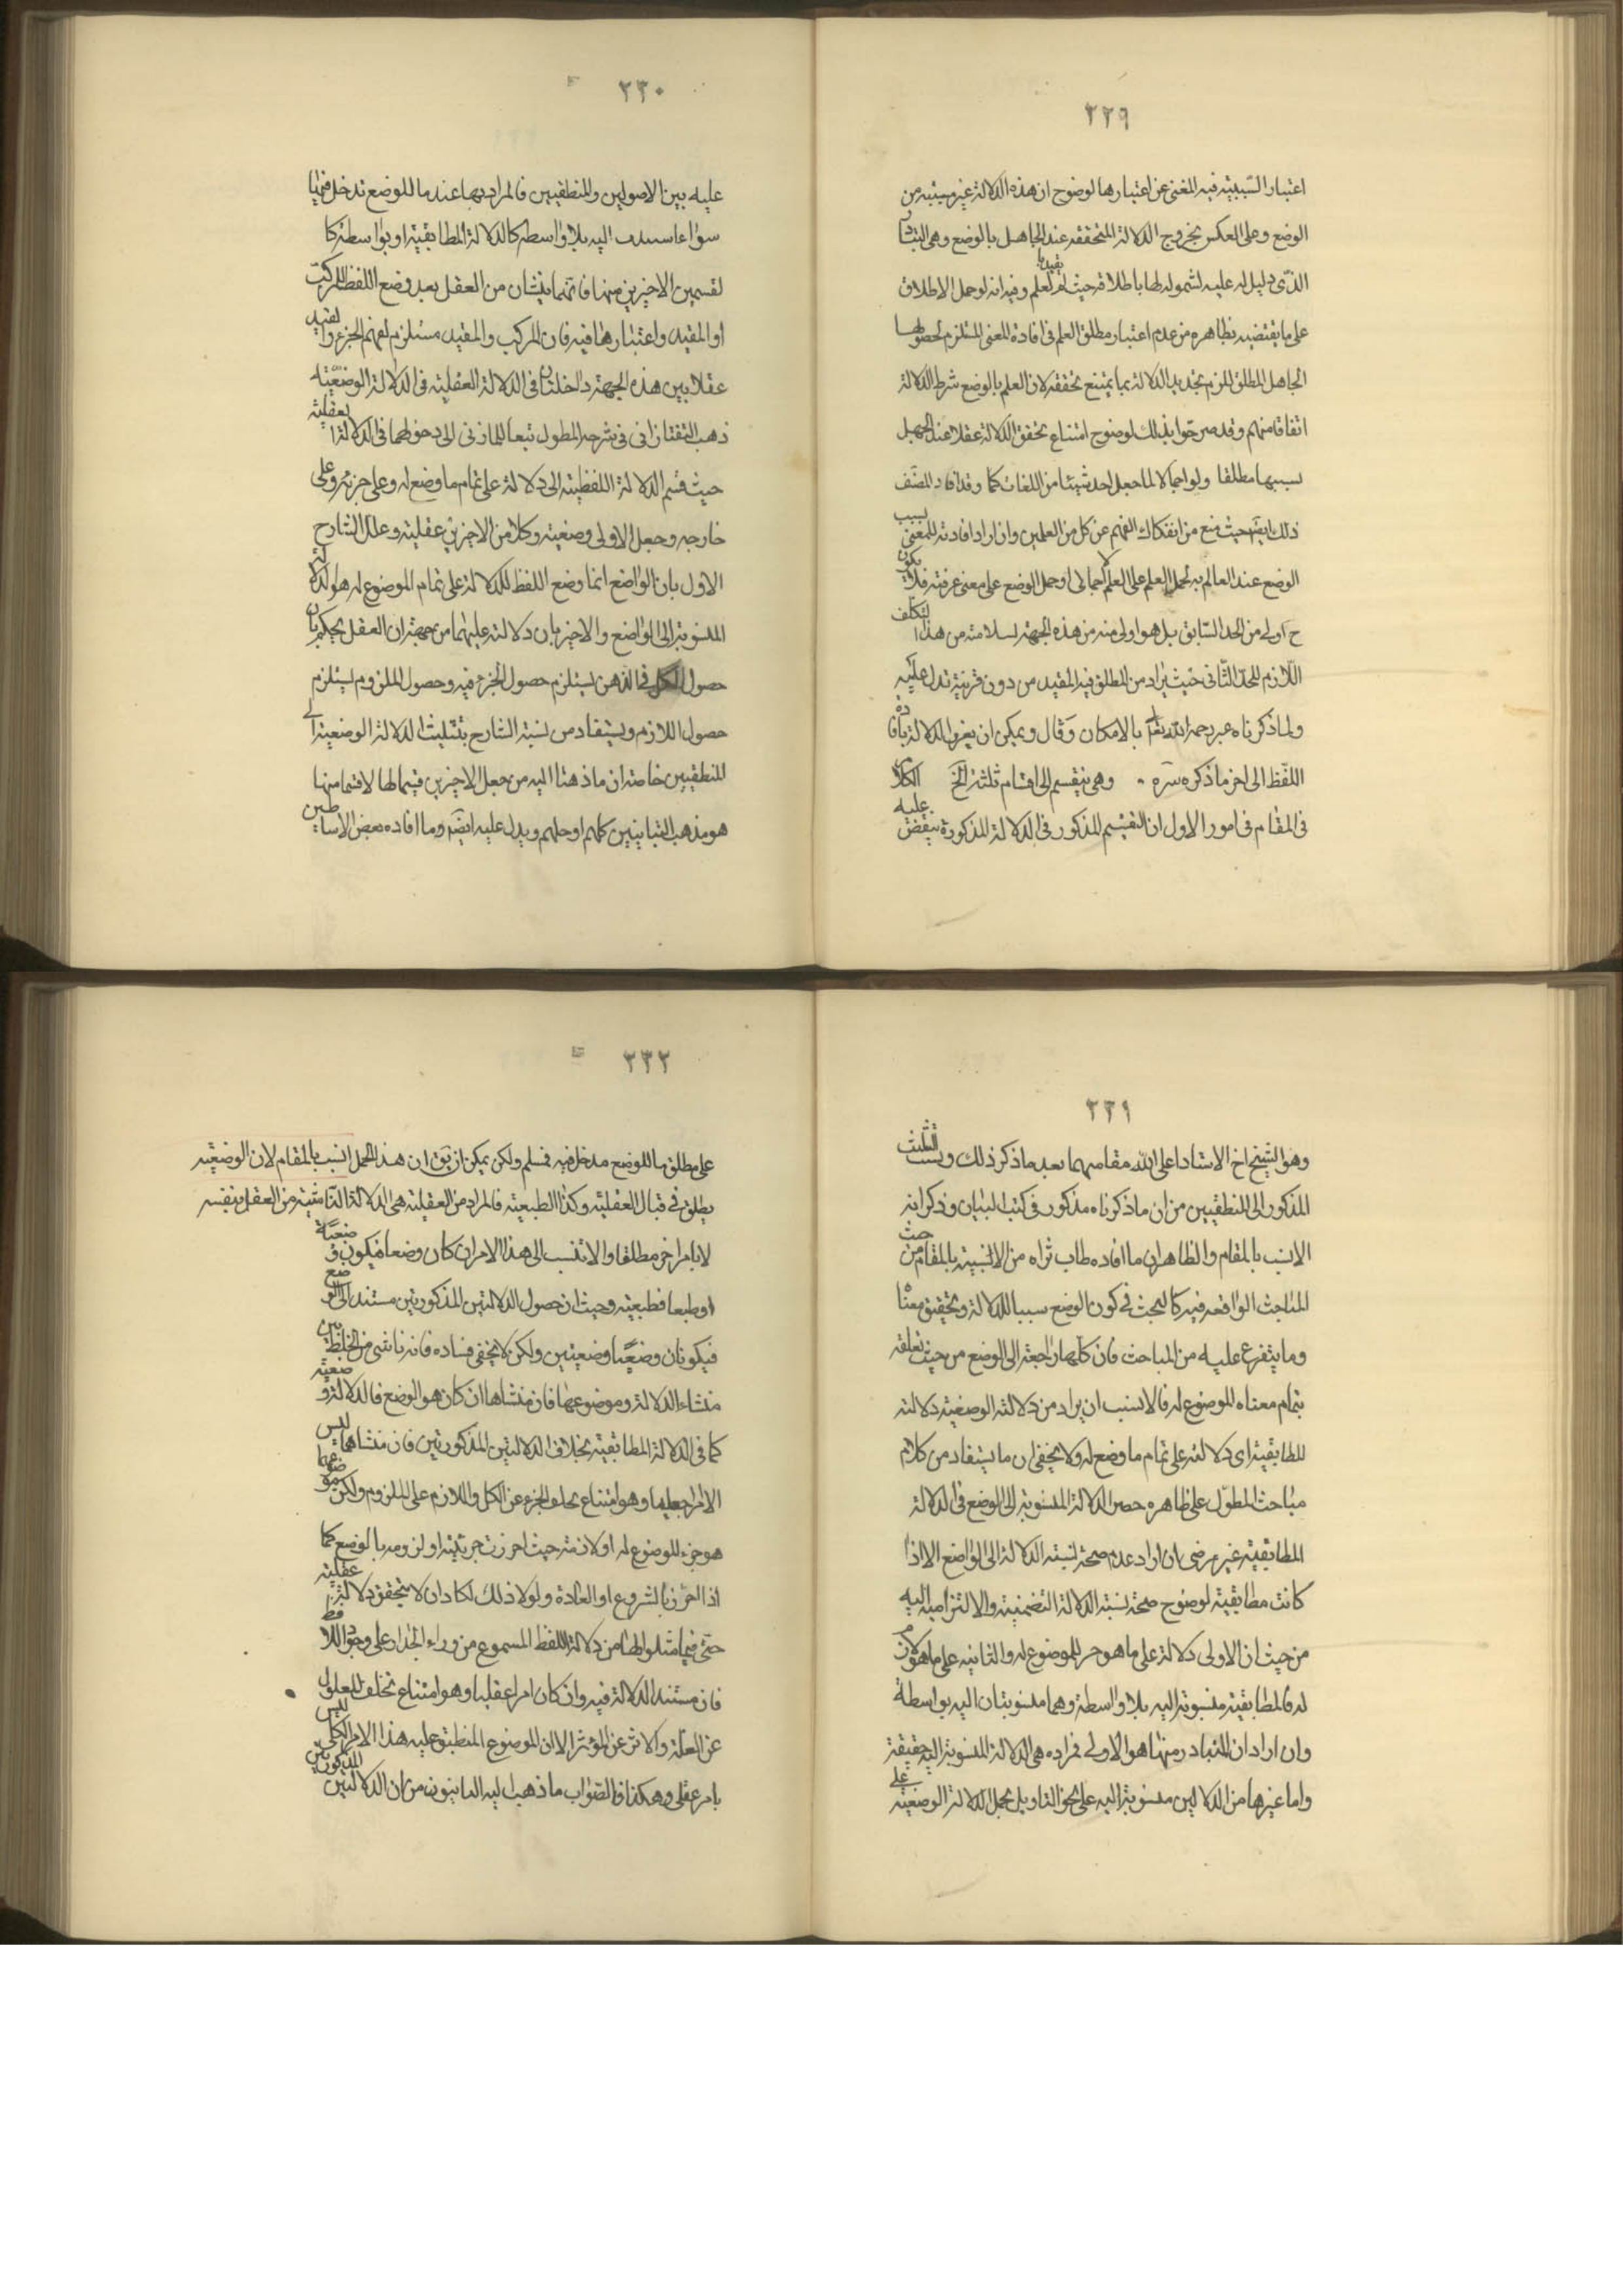 ٢٢٩
اعتبار السّببيّة فيه المغنى عن اعتبارها لوضوح ان هذه الدلالة غير مسببة من
الوضع وعلى العكس بخروج الدلالة المتحققه عند الجاهل بالوضع وهى
الذى دليل له عليه لشموله لها باطلاقه حيث لم يقيد العلم وفيه انه لو حمل الاطلاق
على ما يقتضيه بظاهره من عدم اعتبار مطلق العلم فى افادة المعنى المستلزم لحصولها
الجاهل المطلق للزم تحديد الدلالة بما يمتنع تحققه لان العلم بالوضع شرط الدلالة
اتفاقا منهم وقد صرحوا بذلك لوضوح امتناع تحقق الدلالة عقلا عند الجهل
بسببها مطلقا ولو اجمالا لما جعل احد شيئا من اللغات كما وقد افاد المصنّف
ذلك ايضا حيث منع من انفكاك الفهم عن كل من العلمين وان اراد افادته للمعنى بسبب
الوضع عند العالم به لحمل العلم على العلم الاجمالى او حمل الوضع على معنى عرفته فلا يكون
ح اولى من الحد السّابق بل هو اولى منه من هذه الجهة لسلامته من هذا التكلف
اللّازم للحدّ الثّانى حيث يراد من المطلق فيه المقيد من دون قرينة تدل عليه
ولما ذكرناه عبر رحمه الله تعالى بالامكان وقال ويمكن ان يعرف الدلالة بافادة
اللّفظ الى اخر ما ذكره سره ٠ وهى ينقسم الى اقسام ثلثة الخ الكلام
فى المقام فى امور الاول ان التقسيم المذكور فى الدلالة المذكورة ينقض عليه
٢٣٠
عليه بين الاصولين والمنطقيين فالمراد بها عندما للوضع تدخل فيها
سواء اليه بلا واسطه كالدلالة المطابقية او بواسطة كا
لقسمين الاخيرين منها فانهما ينشان من العقل بعد وضع اللفظ للمركب
او المقيد واعتبارهما فيه فان المركب والمقيد مستلزم لفهم الجزء والقيد
عقلا بين هذه الجهة داخلتان فى الدلالة العقلية فى الدلالة الوضعيّة
ذهب التفتازانى فى شرحه المطول تبعا للمازنى الى دخولهما فى الدلالة العقلية
حيث قسم الدلالة اللفظية الى دلالة على تمام ما وضع له وعلى جزئه وعلى
خارجه وجعل الاولى وضعية وكلا من الاخيرين عقلية وعلل الشارح
الاول بان الواضع انما وضع اللفظ للدلالة على تمام الموضوع له هو الدلالة
المنسوبة الى الواضع والاخير بان دلالته عليهما من جهة ان العقل يحكم بان
حصول الكل فى الذهن يستلزم حصول الجزء فيه وحصول الملزوم يستلزم
حصول اللازم ويستفاد من نسبة الشارح بتثليث الدلالة الوضعية الى
المنطقيين خاصة ان ما ذهبا اليه من جعل الاخيرين قيما لها لا قسما منها
هو مذهب البيانيين كلهم او جلهم ويدل عليه ايضا وما افاده بعض الاساطين
٢٣١
وهو الشيخ اخ الاستاد اعلى الله مقامهما بعد ما ذكر ذلك ونسب التثليث
المذكور الى المنطقيين من ان ما ذكرناه مذكور فى كتب البيان وذكر انه
الانسب بالمقام والظاهر ان ما افاده طاب ثراه من الانسبية بالمقام من حيث
المباحث الواقعه فيه كالبحث فى كون الوضع سببا للدلالة وتحقيق معناه
وما يتفرع عليه من المباحث فان كلها راجعة الى الوضع من حيث تعلقه
بتمام معناه الموضوع له فالانسب ان يراد من دلالته الوضعية دلالته
المطابقية اى دلالته على تمام ما وضع له ولا يخفى ان ما يستفاد من كلام
مباحث المطوّل على ظاهره حصر الدلالة المنسوبة الى الوضع فى الدلالة
المطابقية غير مرضى ان اراد عدم صحة نسبة الدلالة الى الواضع الا اذا
كانت مطابقية لوضوح صحة نسبة الدلالة التضمنية والالتزامية اليه
من حيث ان الاولى دلالة على ما هو جزء للموضوع له والثانيه على ما هو لازم
له فالمطابقية منسوبة اليه بلا واسطة وهما منسوبتان اليه بواسطة
وان اراد ان المتبادر منها هو الاولى فمراده هى الدلالة المنسوبة اليه حقيقة
واما غيرها من الدلالتين منسوبة اليه على نحو التاويل بحمل الدلالة الوضعية على
٢٣٢
على مطلق ما للوضع مدخل فيه فمسلم ولكن يمكن ان يق ان هذا الحمل انسب بالمقام لان الوضعيّه
يطلق فى قبال العقلية وكذا الطبعية فالمراد من العقلية هى الدلالة الناشية من العقل بنفسه
لا بامر اخر مطلقا والا تنسب الى هذا الامر ان كان وضعا فيكون وضعيّة
او طبعا فطبعية وحيث ان حصول الدلالتين المذكورتين مستند الى الوضع
فيكونان وضعيتين ولكن لا يخفى فساده فانه ناشى من الخلط بين
منشاء الدلالة وموضوعها فان منشاها ان كان هو الوضع فالدلالة وضعيّة
كما فى الدلالة المطابقية بخلاف الدلالتين المذكورتين فان منشاهما ليس
الا امرا جعليا وهو امتناع تخلف الجزء عن الكل واللازم على الملزوم ولكن موضوعها
هو جزء للموضوع له او لازمه حيث احرزت جزئيته او لزومه بالوضع كما
اذا احرزتا بالشروع او العادة ولولا ذلك لكا دان لا يتحقق دلالة عقلية
حتى فيما مثلوا لها من دلالة اللفظ المسموع من وراء الجدار على وجود اللافظ
فان مستند الدلالة فيه وان كان امرا عقليا وهو امتناع تخلف المعلول
عن العلّة والاثر عن المؤثر الا ان الموضوع المنطبق عليه هذا الامر الكلى ليس
بامر عقلى وهكذا فالصّواب ما ذهب اليه البيانيون من ان الدلالتين المذكورتين